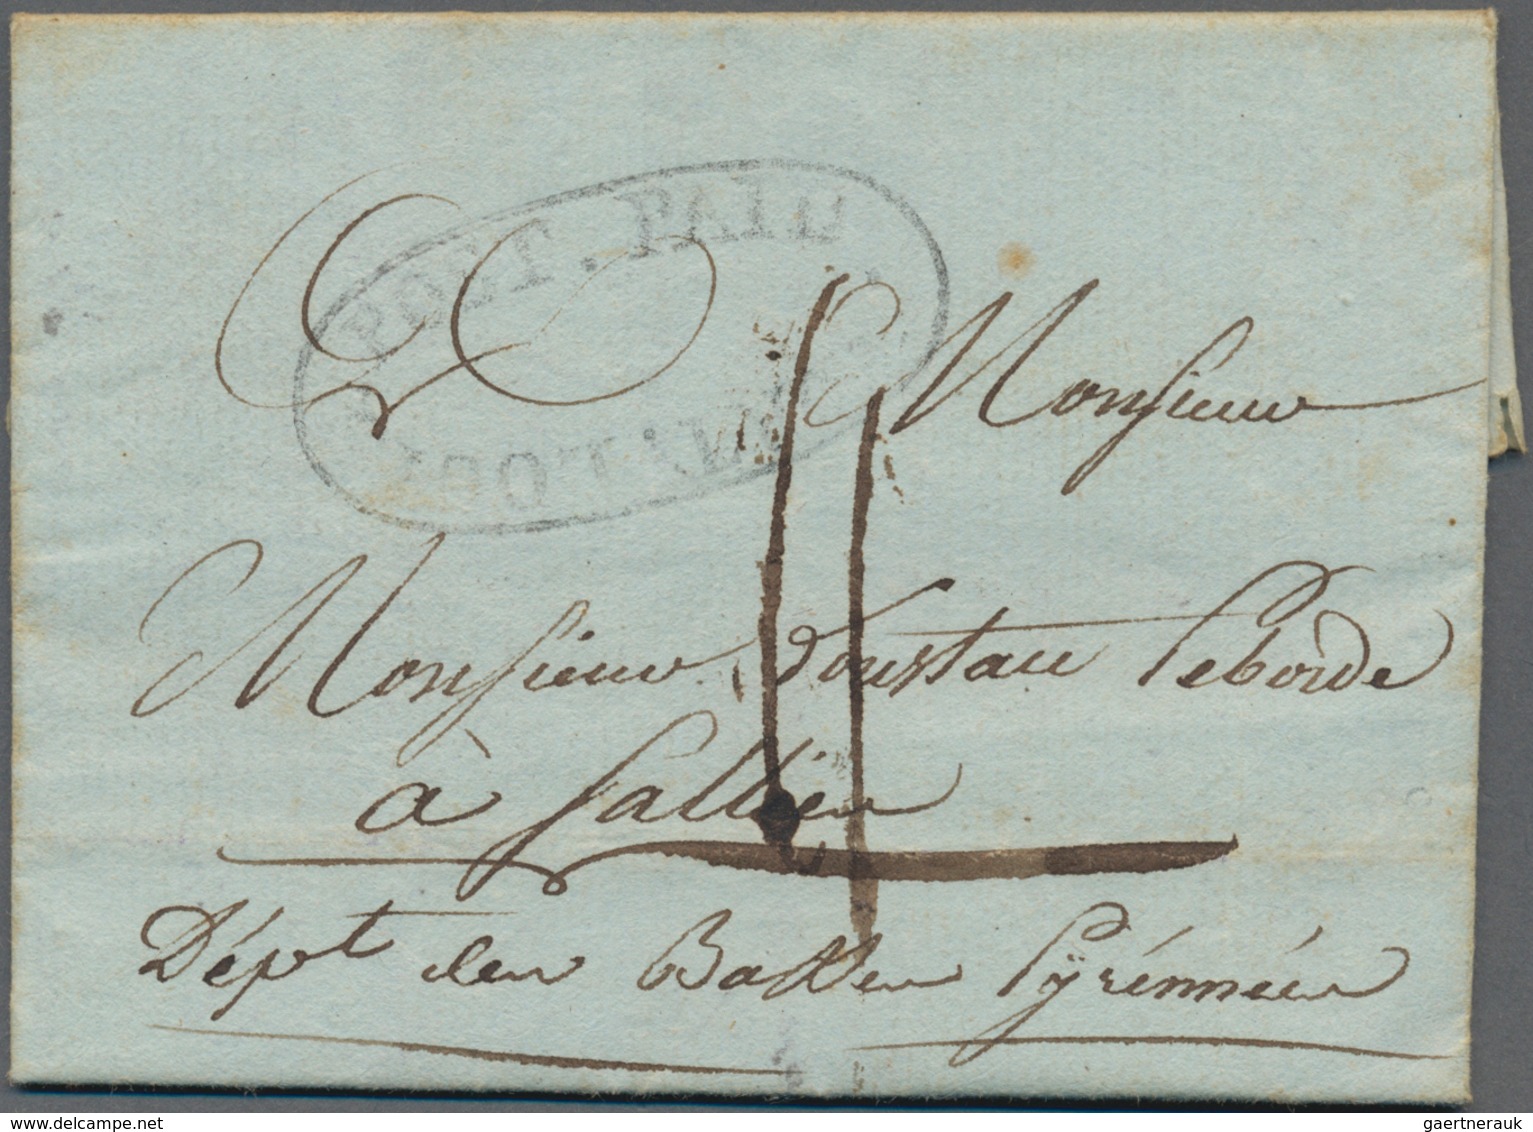 PORT. PAID
Monsieur
Monsieur Laborde
à Sallies
Dép.t des Basses Pyrénnées
gaertnerauk